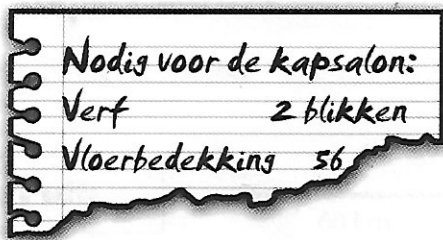 Nodig voor de kapsalon:
Verf 2 blikken
Vloerbedekking 56